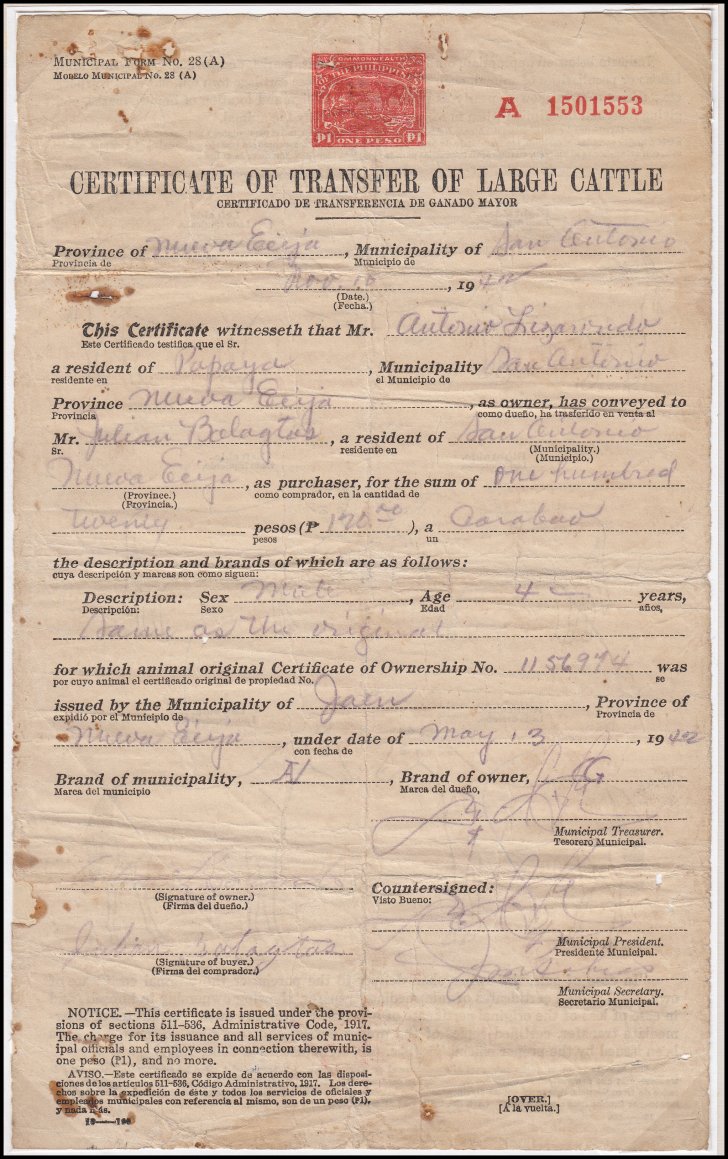 MUNICIPAL FORM NO. 28 (A)
MODELO MUNICIPAL NO. 28 (A)
COMMONWEALTH
OF THE PHILIPPINES
₱1 ONE PESO ₱1
A 1501553
CERTIFICATE OF TRANSFER OF LARGE CATTLE
CERTIFICADO DE TRANSFERENCIA DE GANADO MAYOR
Province of Nueva Ecija, Municipality of San Antonio
Provincia de Municipio de
Nov. 1942
(Date.)
(Fecha.)
This Certificate witnesseth that Mr. Antonio Lizarondo
Este Certificado testifica que el Sr.
a resident of Papaya, Municipality San Antonio
residente en el Municipio de
Province Nueva Ecija, as owner, has conveyed to
Provincia como dueño, ha trasferido en venta al
Mr. Julian Balagtas, a resident of San Antonio
Sr. residente en (Municipality.)
(Municipio.)
Nueva Ecija, as purchaser, for the sum of one hundred
(Province.) como comprador, en la cantidad de
(Provincia.)
twenty pesos (₱ 120.00), a Carabao
pesos un
the description and brands of which are as follows:
cuya descripción y marcas son como siguen:
Description: Sex Male, Age 4 years,
Descripción: Sexo Edad años,
Same as the original
for which animal original Certificate of Ownership No. 1156974 was
por cuyo animal el certificado original de propiedad No. se
issued by the Municipality of Jaen, Province of
expidió por el Municipio de Provincia de
Nueva Ecija, under date of May 13, 1942
con fecha de
Brand of municipality, Brand of owner,
Marca del municipio Marca del dueño,
Municipal Treasurer.
Tesorero Municipal.
(Signature of owner.)
(Firma del dueño.)
Countersigned:
Visto Bueno:
Municipal President.
Presidente Municipal.
Julian Balagtas
(Signature of buyer.)
(Firma del comprador.)
Municipal Secretary.
Secretario Municipal.
NOTICE.—This certificate is issued under the provi-
sions of sections 511-536, Administrative Code, 1917.
The charge for its issuance and all services of munic-
ipal officials and employees in connection therewith, is
one peso (₱1), and no more.
AVISO.—Este certificado se expide de acuerdo con las disposi-
ciones de los artículos 511-536, Código Administrativo, 1917. Los dere-
chos sobre la expedición de éste y todos los servicios de oficiales y
empleados municipales con referencia al mismo, son de un peso (₱1),
y nada más.
[OVER.]
[A la vuelta.]